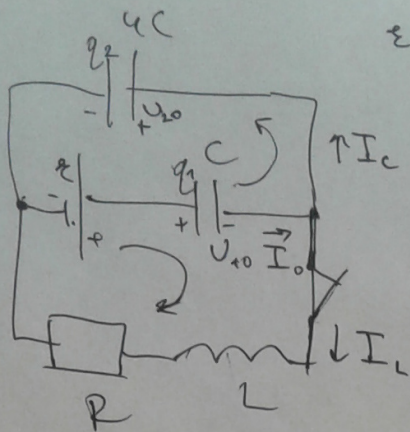 4C
ε
q₂
- + U₂₀
ε C
q₁
↑ I_C
- + + -
U₁₀ I₀
↓ I_L
R L